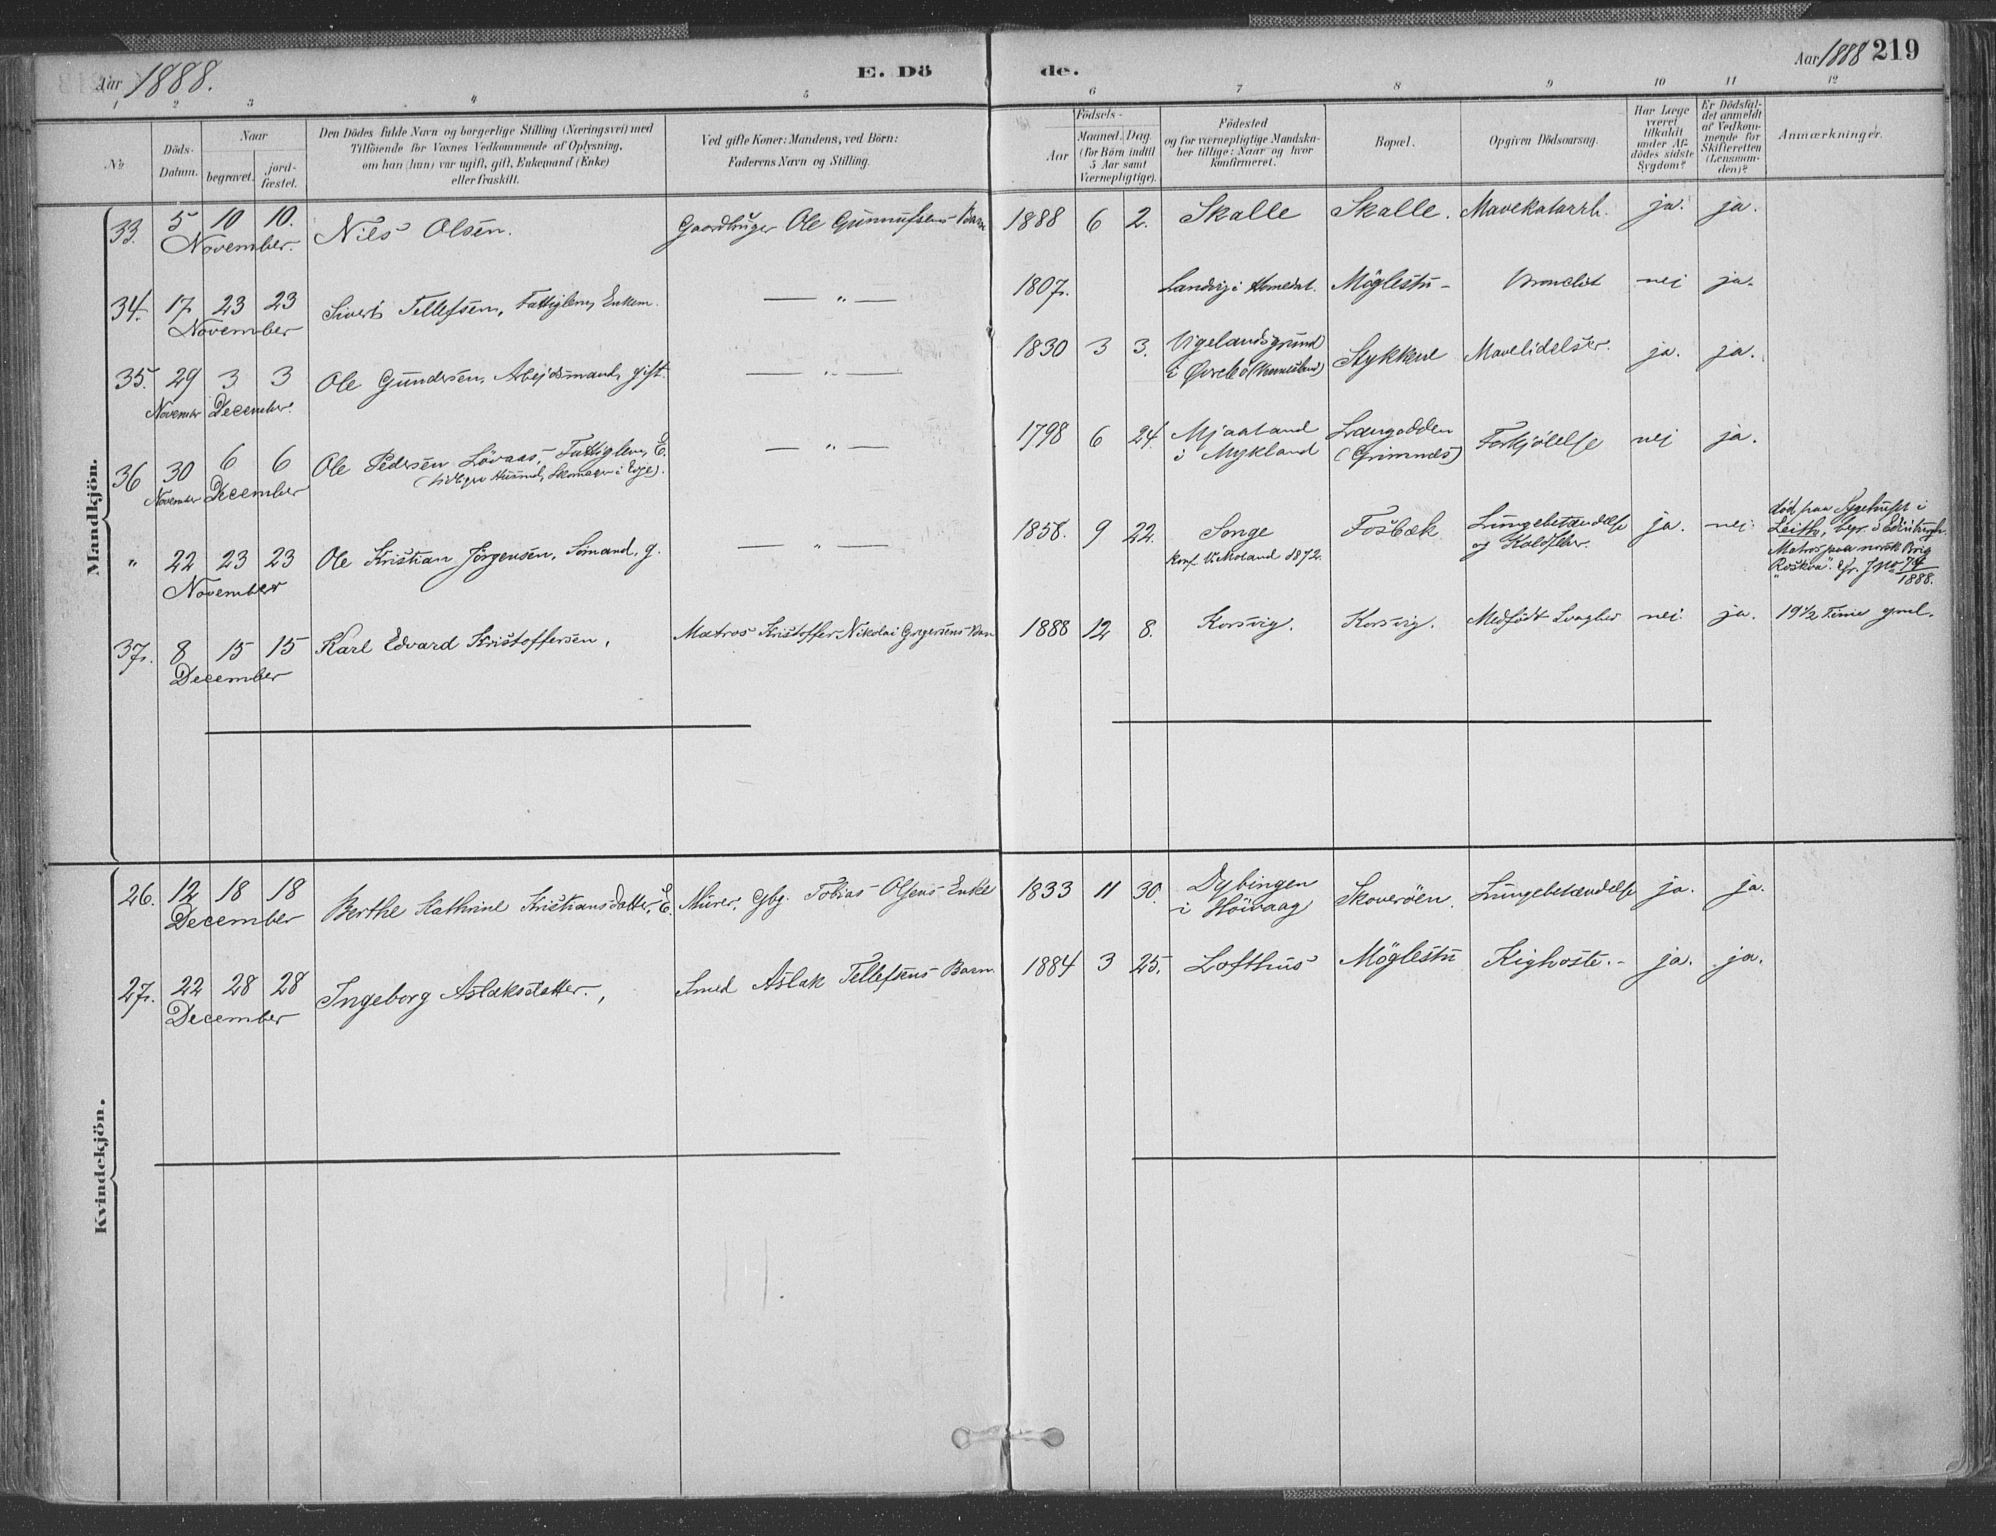 Aar 1888.
E. Dö
de.
Aar 1888 219
1 2 3 4 5 6 7 8 9 10 11 12
No
Döds-Datum.
Naar
begravet.
jord-fæstet.
Den Dödes fulde Navn og borgerlige Stilling (Næringsvei) med
Tilföiende for Voxnes Vedkommende af Oplysning,
om han (hun) var ugift, gift, Enkemand (Enke)
eller fraskilt.
Ved gifte Koner: Mandens, ved Börn:
Faderens Navn og Stilling.
Födsels-
Aar
Maaned. Dag.
(for Börn indtil
5 Aar samt
Værnepligtige).
Födested
og for værnepligtige Mandska-
ber tillige: Naar og hvor
konfirmeret.
Bopæl.
Opgiven Dödsaarsag.
Har Læge
været
tilkaldt
under Af-
dödes sidste
Sygdom?
Er Dödsfal-
det anmeldt
af Vedkom-
mende for
Skifteretten
(Lensman-
den)?
Anmærkninger.
Mandkjön.
33. 5 10 10. Nils Olsen. Gaardbruger Ole Gunnufsens Barn 1888 6 2. Skalle Skalle. Mavekatarrh. ja. ja.
November.
34. 17 23 23 Sivert Tellefsen, Fattiglem, Enkem. — " — 1807. Landvig i Homedal. Möglestu - Bronchit nei ja.
November
35. 29 3 3 Ole Gundersen, Arbejdsmand, gift. — " — 1830 3 3. Vigelandsgrund
i Øvrebö (Vennesland) Stykkene Mavelidelser. ja. ja.
November December.
36 30 6 6 Ole Pedersen Lövaas, Fattiglem, E.
(tidligere Husmd, Skomager i Evje). — " — 1798 6 24. Mjaaland
i Mykland Langodden
(Grimnes) Forkjölelse nei ja.
November December
" 22 23 23 Ole Kristian Jörgensen, Sömand, g. — " — 1858. 9 22. Songe
Konf. V. Moland 1872. Fosbæk Lungebetændelse
og Koldfeber. ja. nei
November
död paa Sygehuset i
Leith, begr. i Edinburgh.
Matros paa norsk Brig
"Roskva". Cfr. J.No 74/1888.
37. 8 15 15 Karl Edvard Kristoffersen, Matros Kristoffer Nikolai Gregersens Barn 1888 12 8. Korsvig. Korsvig. Medfödt Svaghed nei. ja. 19½ Time gml.
December
Kvindekjön.
26. 12 18 18 Berthe Kathrine Kristiansdatter, E. Murer, Gbg. Tobias Olsens Enke 1833 11 30. Dybingen
i Höivaag Skoveröen. Lungebetændelse ja. ja.
December
27. 22 28 28 Ingeborg Aslaksdatter., Smed Aslak Tellefsens Barn. 1884 3 25. Lofthus Möglestu Kighoste. - ja. ja.
December